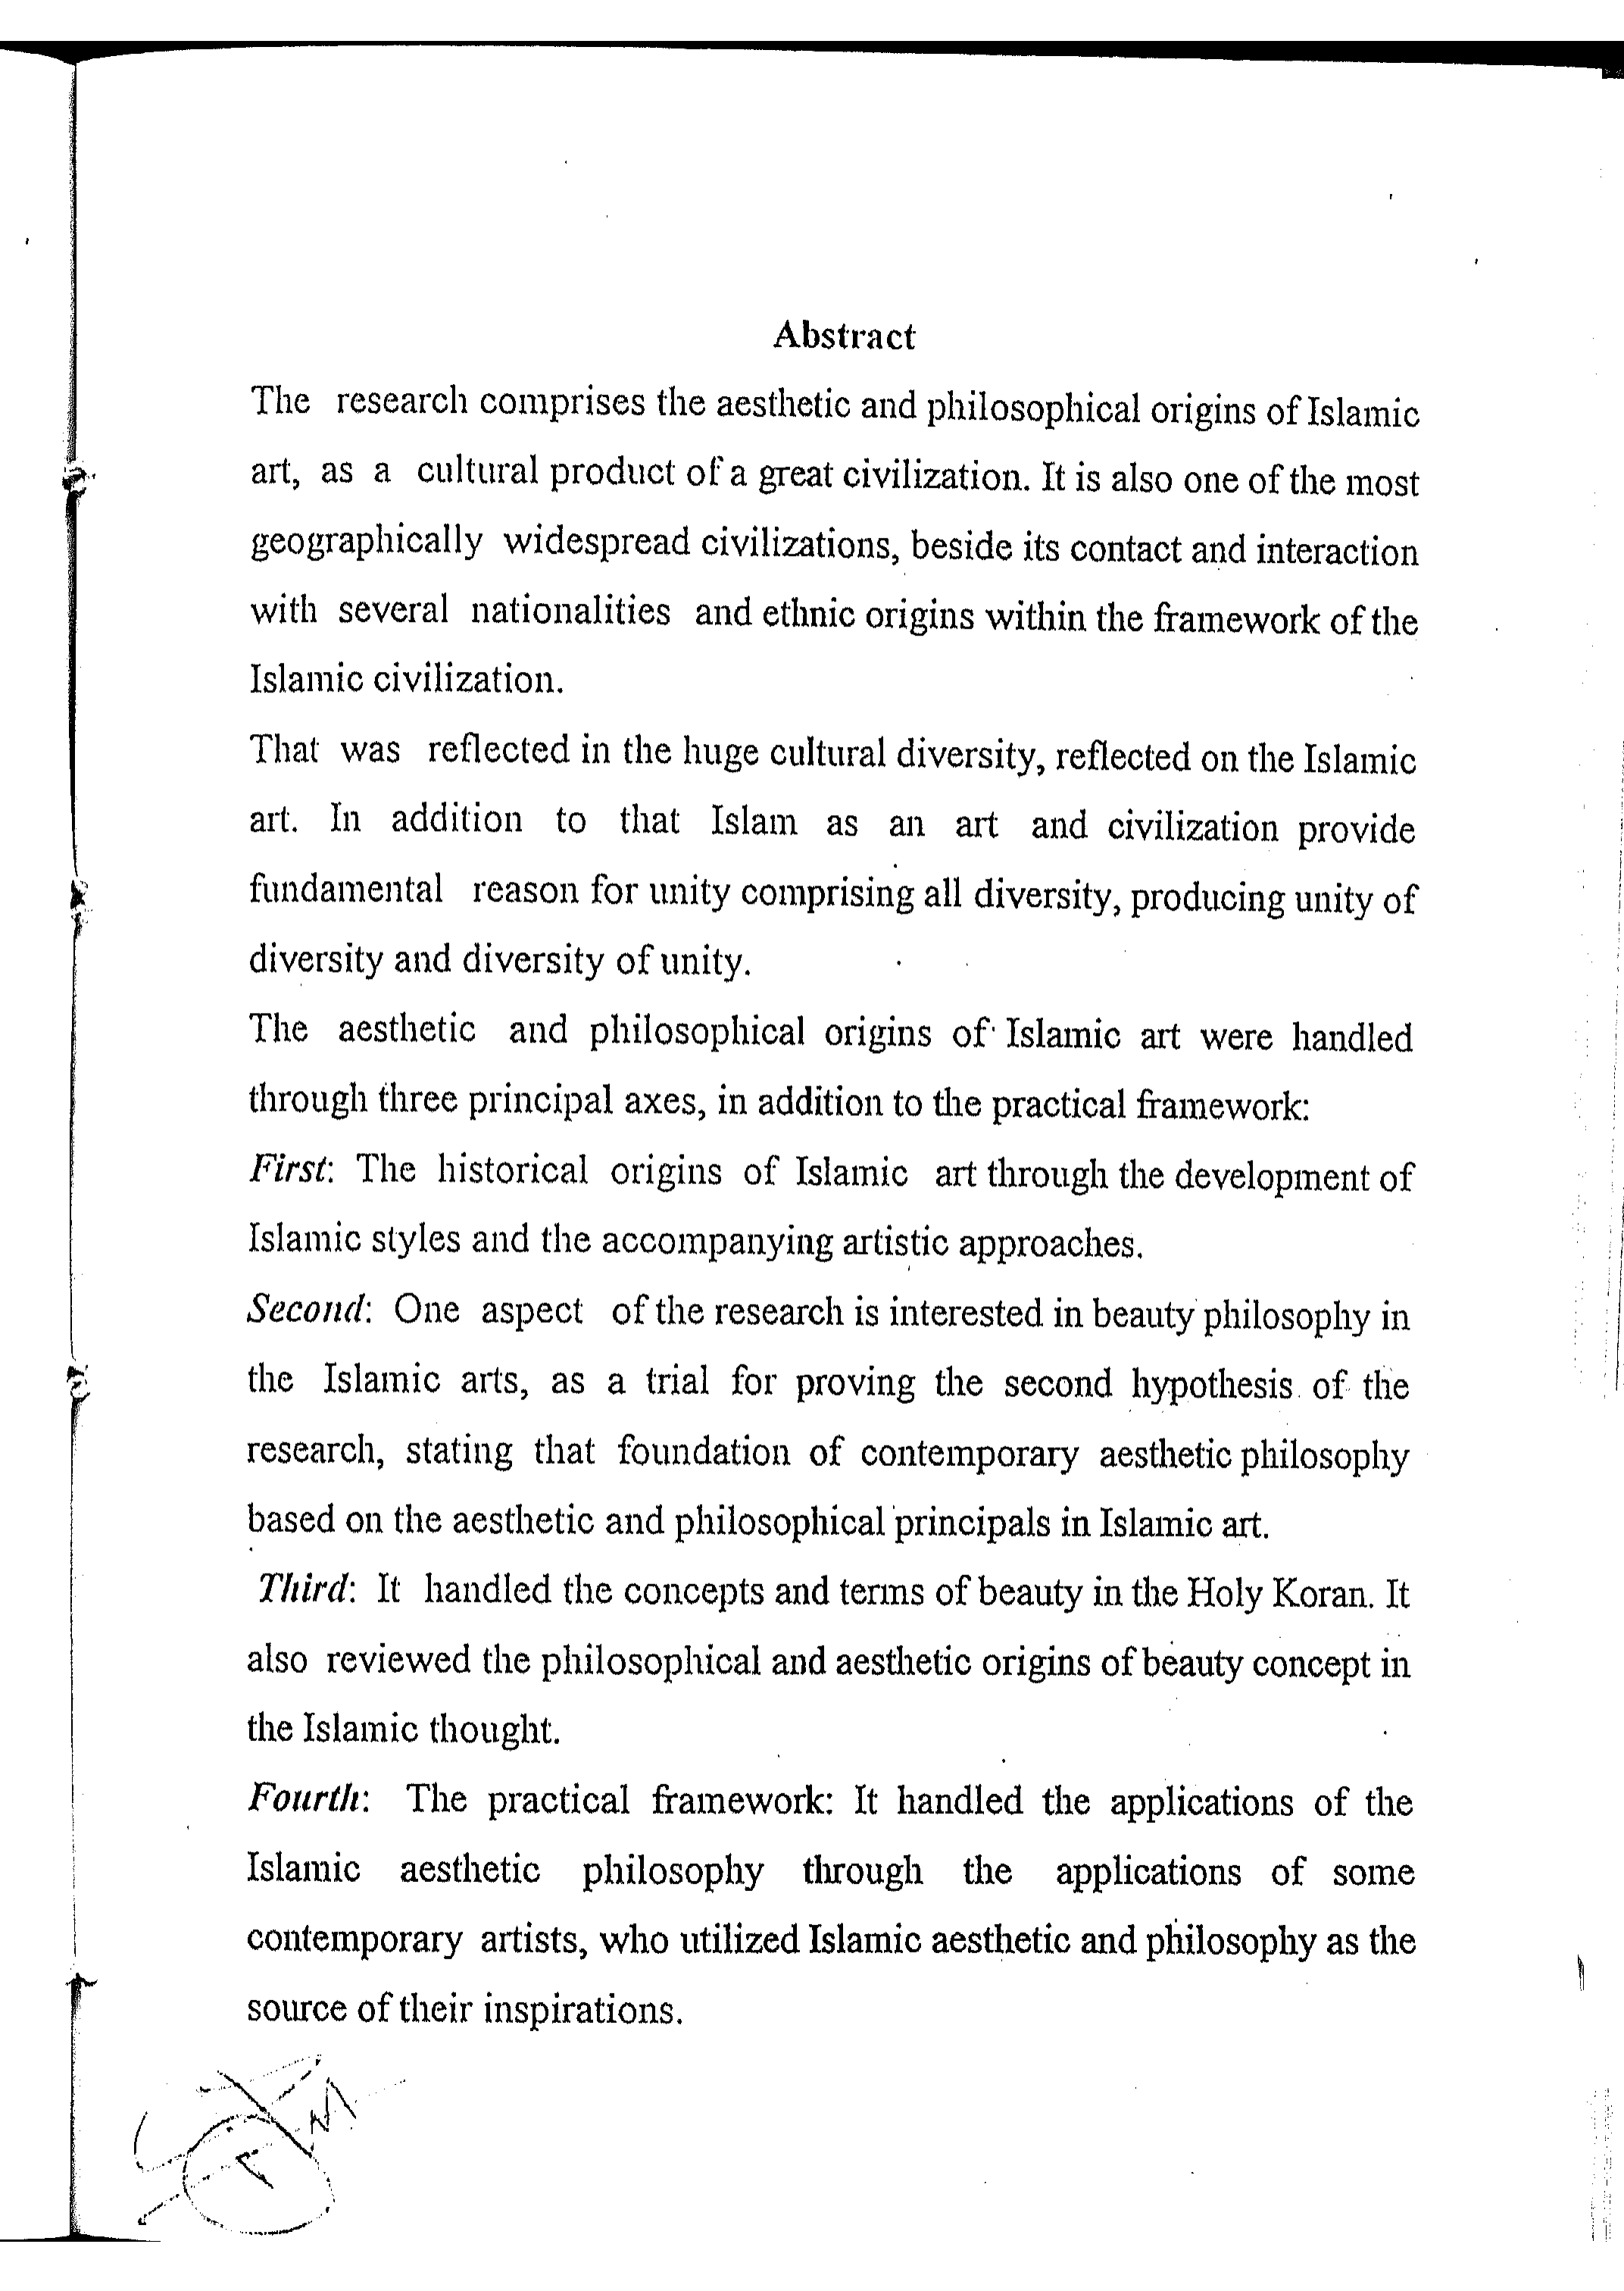 Abstract
The research comprises the aesthetic and philosophical origins of Islamic
art, as a cultural product of a great civilization. It is also one of the most
geographically widespread civilizations, beside its contact and interaction
with several nationalities and ethnic origins within the framework of the
Islamic civilization.
That was reflected in the huge cultural diversity, reflected on the Islamic
art. In addition to that Islam as an art and civilization provide
fundamental reason for unity comprising all diversity, producing unity of
diversity and diversity of unity.
The aesthetic and philosophical origins of Islamic art were handled
through three principal axes, in addition to the practical framework:
First: The historical origins of Islamic art through the development of
Islamic styles and the accompanying artistic approaches.
Second: One aspect of the research is interested in beauty philosophy in
the Islamic arts, as a trial for proving the second hypothesis of the
research, stating that foundation of contemporary aesthetic philosophy
based on the aesthetic and philosophical principals in Islamic art.
Third: It handled the concepts and terms of beauty in the Holy Koran. It
also reviewed the philosophical and aesthetic origins of beauty concept in
the Islamic thought.
Fourth: The practical framework: It handled the applications of the
Islamic aesthetic philosophy through the applications of some
contemporary artists, who utilized Islamic aesthetic and philosophy as the
source of their inspirations.